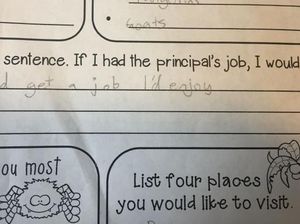 • Goats
sentence. If I had the principal's job, I would
d get a job I'd enjoy
ou most
List four places
you would like to visit.